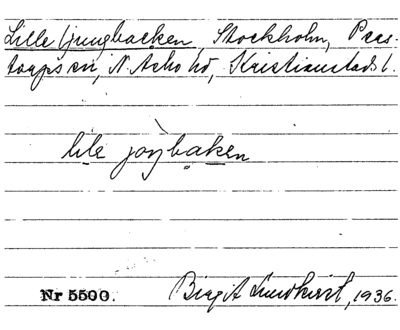 Lille ljungbacken, Stockholm, Pers-
torps sn, N. Åsbo hd, Kristianstads l.
lile joŋbaken
Nr 5500.
Birgit Lundkvist, 1936.